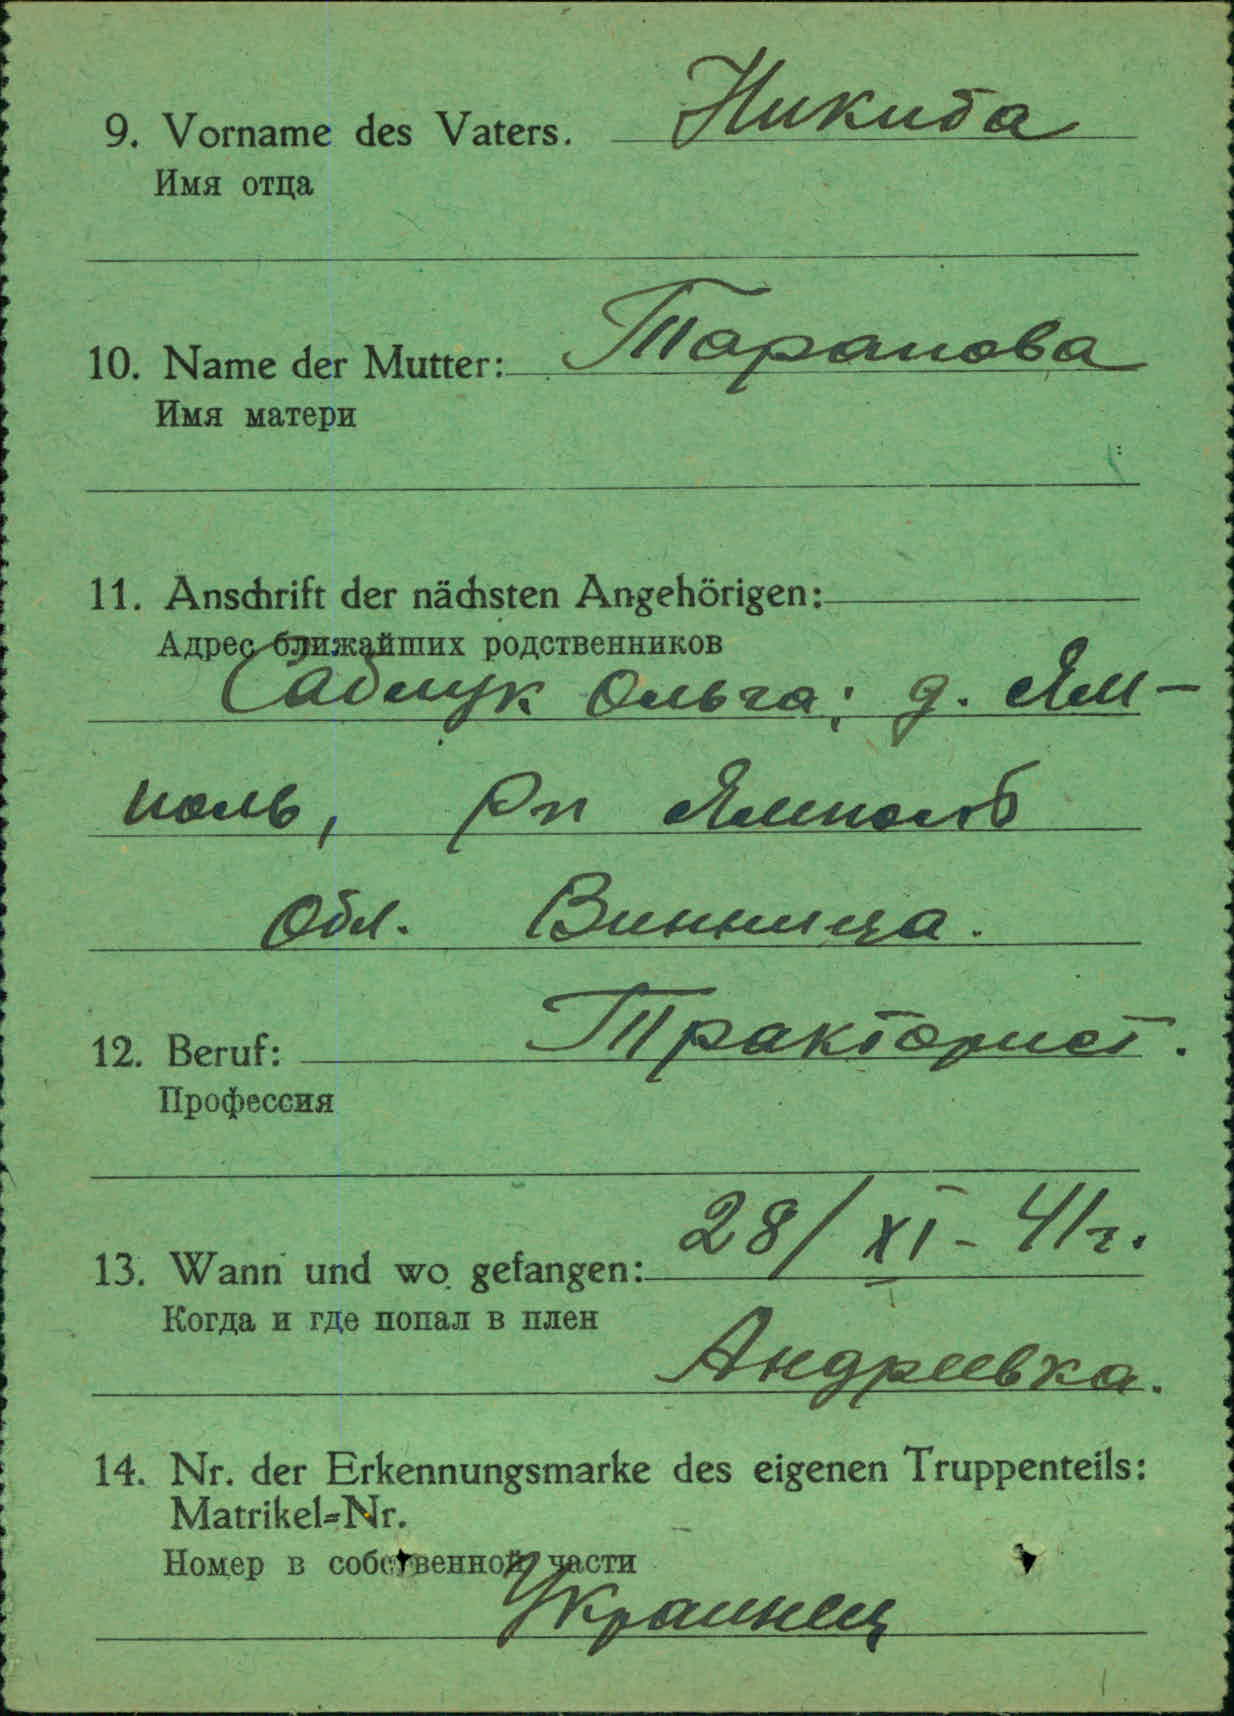 9. Vorname des Vaters. Никита
Имя отца
10. Name der Mutter: Таранова
Имя матери
11. Anschrift der nächsten Angehörigen:
Адрес ближайших родственников
Саблук Ольга; д. Ям-
поль, Рн Ямполь
Обл. Винница.
12. Beruf: Тракторист.
Профессия
28/XI - 41г.
13. Wann und wo gefangen:
Когда и где попал в плен
Андреевка.
14. Nr. der Erkennungsmarke des eigenen Truppenteils:
Matrikel=Nr.
Номер в собственной части
Украинец